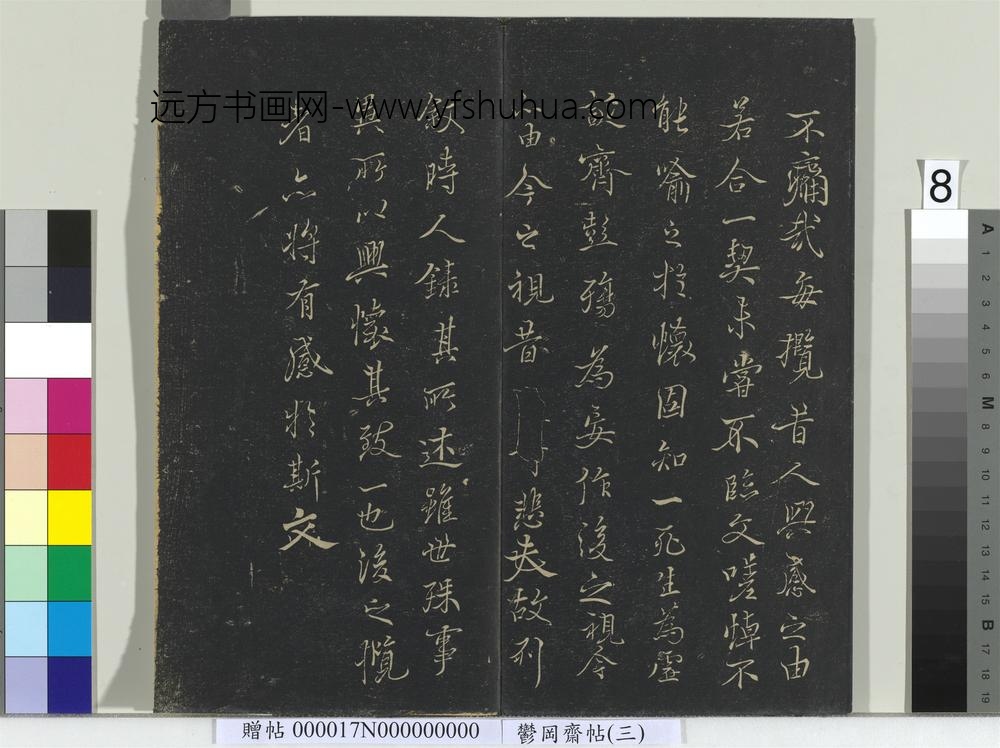 不痛哉每攬昔人興感之由
若合一契未嘗不臨文嗟悼不
能喻之於懷固知一死生為虛
誕齊彭殤為妄作後之視今
由今之視昔悲夫故列
敘時人錄其所述雖世殊事
異所以興懷其致一也後之攬
者亦將有感於斯文
远方书画网-www.yfshuhua.com
8
A
1
2
3
4
5
6
M
8
9
10
11
12
13
14
15
B
17
18
19
贈帖 000017N000000000
鬱岡齋帖(三)